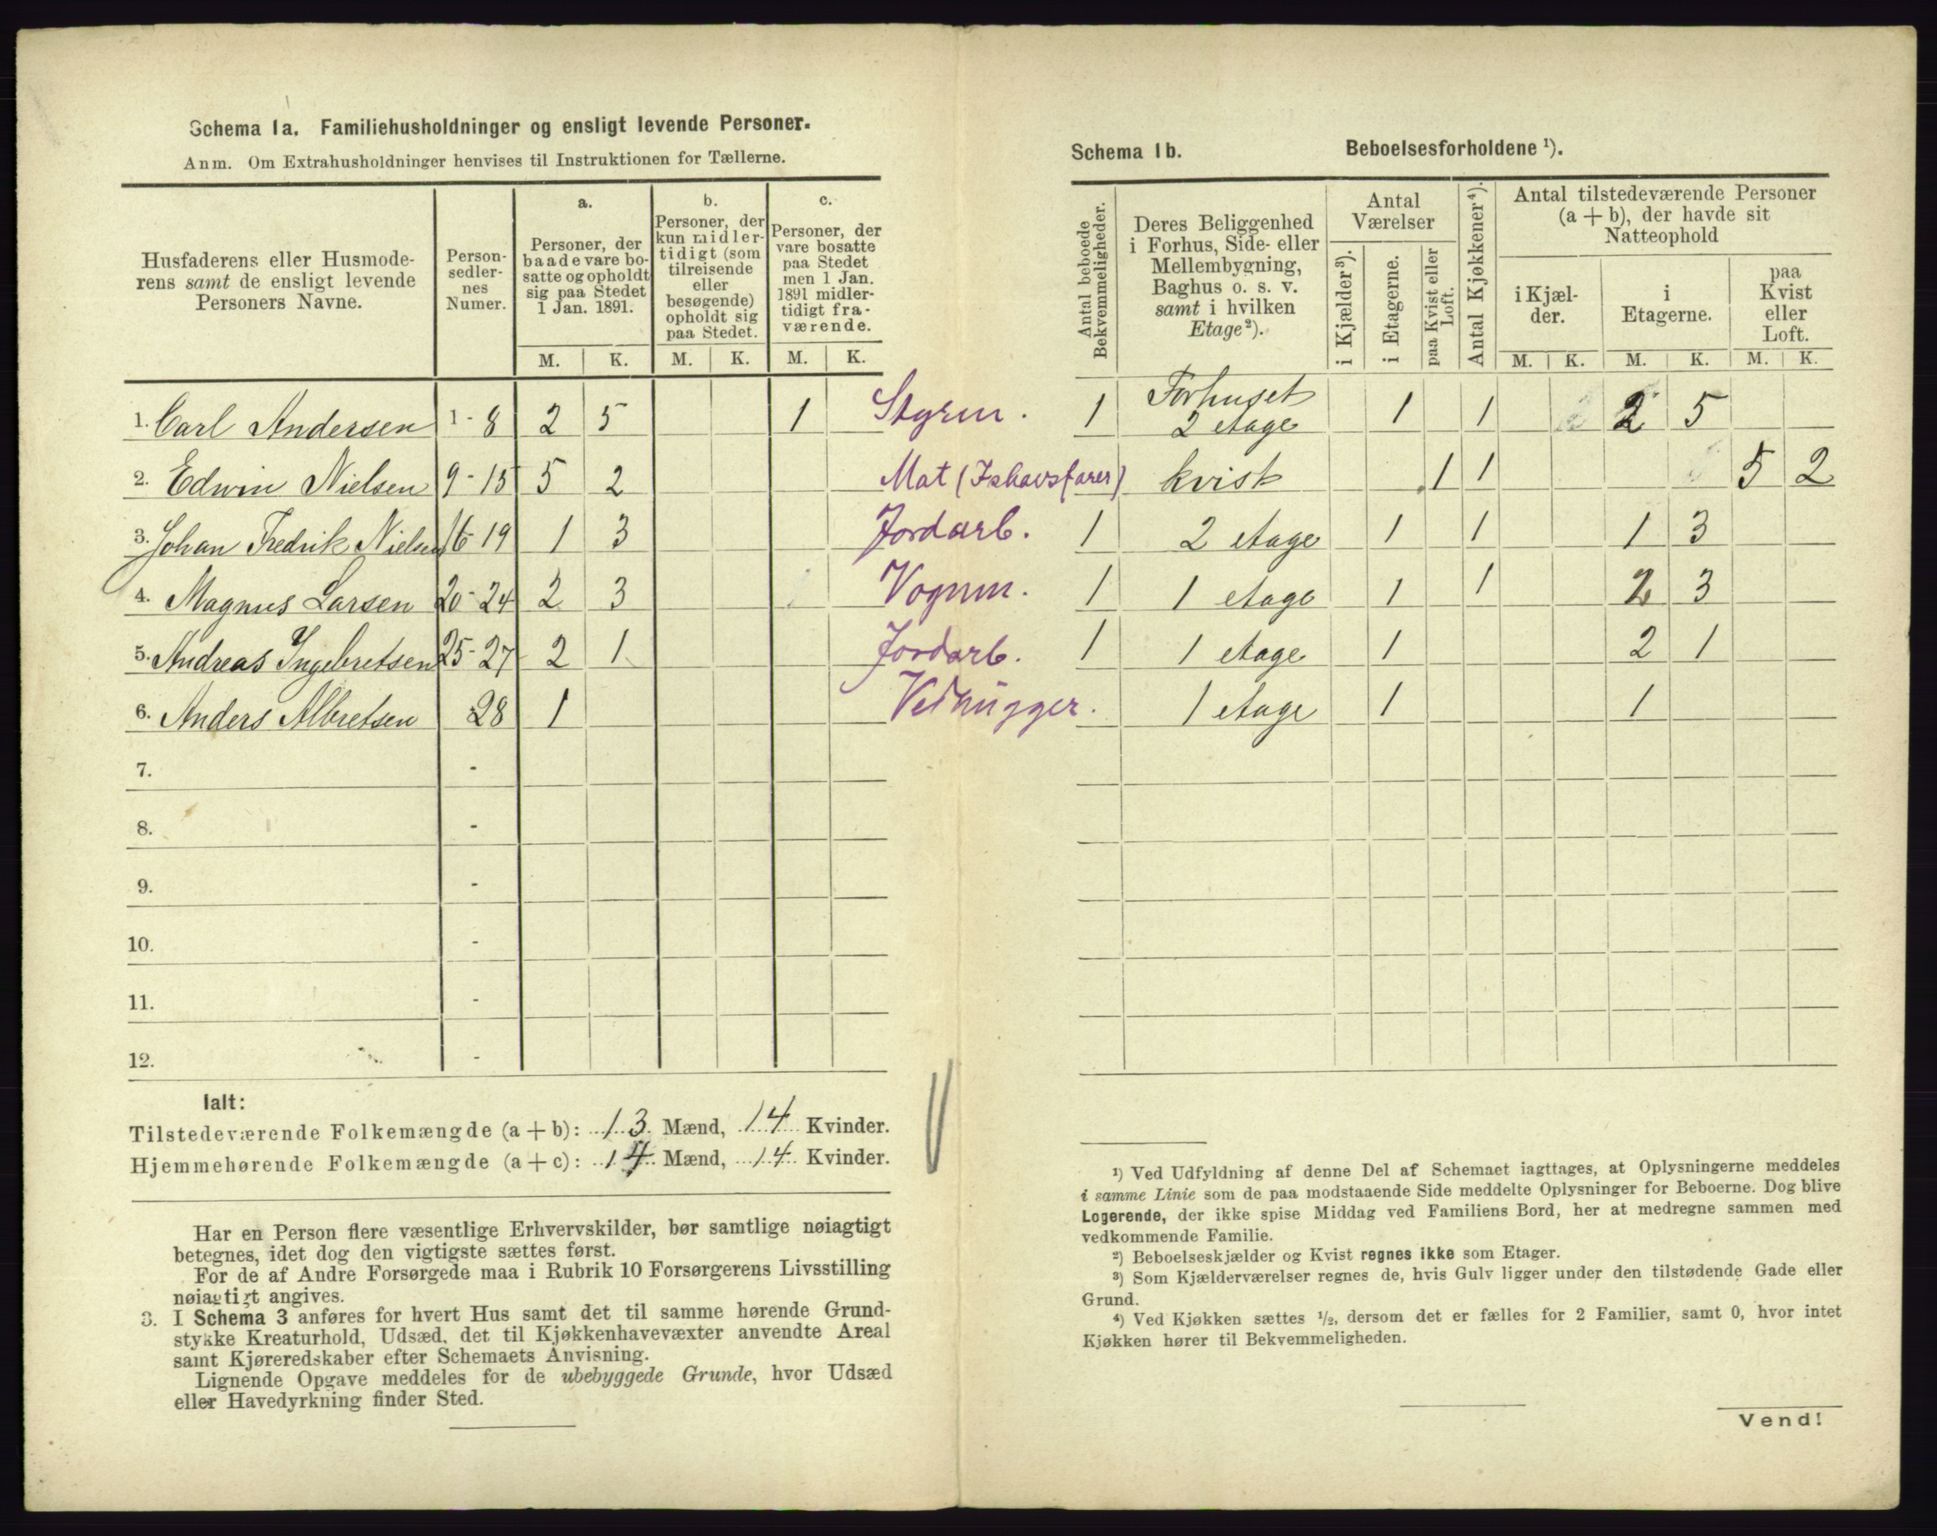 Schema 1a. Familiehusholdninger og ensligt levende Personer.
Anm. Om Extrahusholdninger henvises til Instruktionen for Tællerne.
Husfaderens eller Husmoderens samt de ensligt levende Personers Navne.
Person-sedler-nes Numer.
a.
Personer, der baade vare bosatte og opholdt sig paa Stedet 1 Jan. 1891.
b.
Personer, der kun midlertidigt (som tilreisende eller besøgende) opholdt sig paa Stedet.
c.
Personer, der vare bosatte paa Stedet men 1 Jan. 1891 midlertidigt fraværende.
M. K. M. K. M. K.
1. Carl Andersen 1 - 8 2 5 1 Styrm.
2. Edwin Nielsen 9 - 15 5 2 Mat (Ishavsfarer)
3. Johan Fredrik Nielsen 16 - 19 1 3 Jordarb.
4. Magnus Larsen 20 - 24 2 3 Vognm.
5. Andreas Ingebretsen 25 - 27 2 1 Jordarb.
6. Anders Albretsen 28 1 Vedhugger.
7. -
8. -
9. -
10. -
11. -
12. -
Ialt:
Tilstedeværende Folkemængde (a + b): 13 Mænd, 14 Kvinder.
Hjemmehørende Folkemængde (a + c): 14 Mænd, 14 Kvinder.
Har en Person flere væsentlige Erhvervskilder, bør samtlige nøiagtigt
betegnes, idet dog den vigtigste sættes først.
For de af Andre Forsørgede maa i Rubrik 10 Forsørgerens Livsstilling
nøiagtigt angives.
3. I Schema 3 anføres for hvert Hus samt det til samme hørende Grund-
stykke Kreaturhold, Udsæd, det til Kjøkkenhavevæxter anvendte Areal
samt Kjøreredskaber efter Schemaets Anvisning.
Lignende Opgave meddeles for de ubebyggede Grunde, hvor Udsæd
eller Havedyrkning finder Sted.
Schema 1b. Beboelsesforholdene ¹).
Antal beboede Bekvemmeligheder.
Deres Beliggenhed i Forhus, Side- eller Mellembygning, Baghus o. s. v. samt i hvilken Etage²).
Antal Værelser
i Kjælder³).
i Etagerne.
paa Kvist eller Loft.
Antal Kjøkkener⁴).
Antal tilstedeværende Personer (a + b), der havde sit Natteophold
i Kjælder.
i Etagerne.
paa Kvist eller Loft.
M. K. M. K. M. K.
1 Forhuset 2 etage 1 1 2 5
kvist 1 1 5 2
1 2 etage 1 1 1 3
1 1 etage 1 1 2 3
1 1 etage 1 2 1
1 etage 1 1
¹) Ved Udfyldning af denne Del af Schemaet iagttages, at Oplysningerne meddeles
i samme Linie som de paa modstaaende Side meddelte Oplysninger for Beboerne. Dog blive
Logerende, der ikke spise Middag ved Familiens Bord, her at medregne sammen med
vedkommende Familie.
²) Beboelseskjælder og Kvist regnes ikke som Etager.
³) Som Kjælderværelser regnes de, hvis Gulv ligger under den tilstødende Gade eller
Grund.
⁴) Ved Kjøkken sættes ½, dersom det er fælles for 2 Familier, samt 0, hvor intet
Kjøkken hører til Bekvemmeligheden.
Vend!